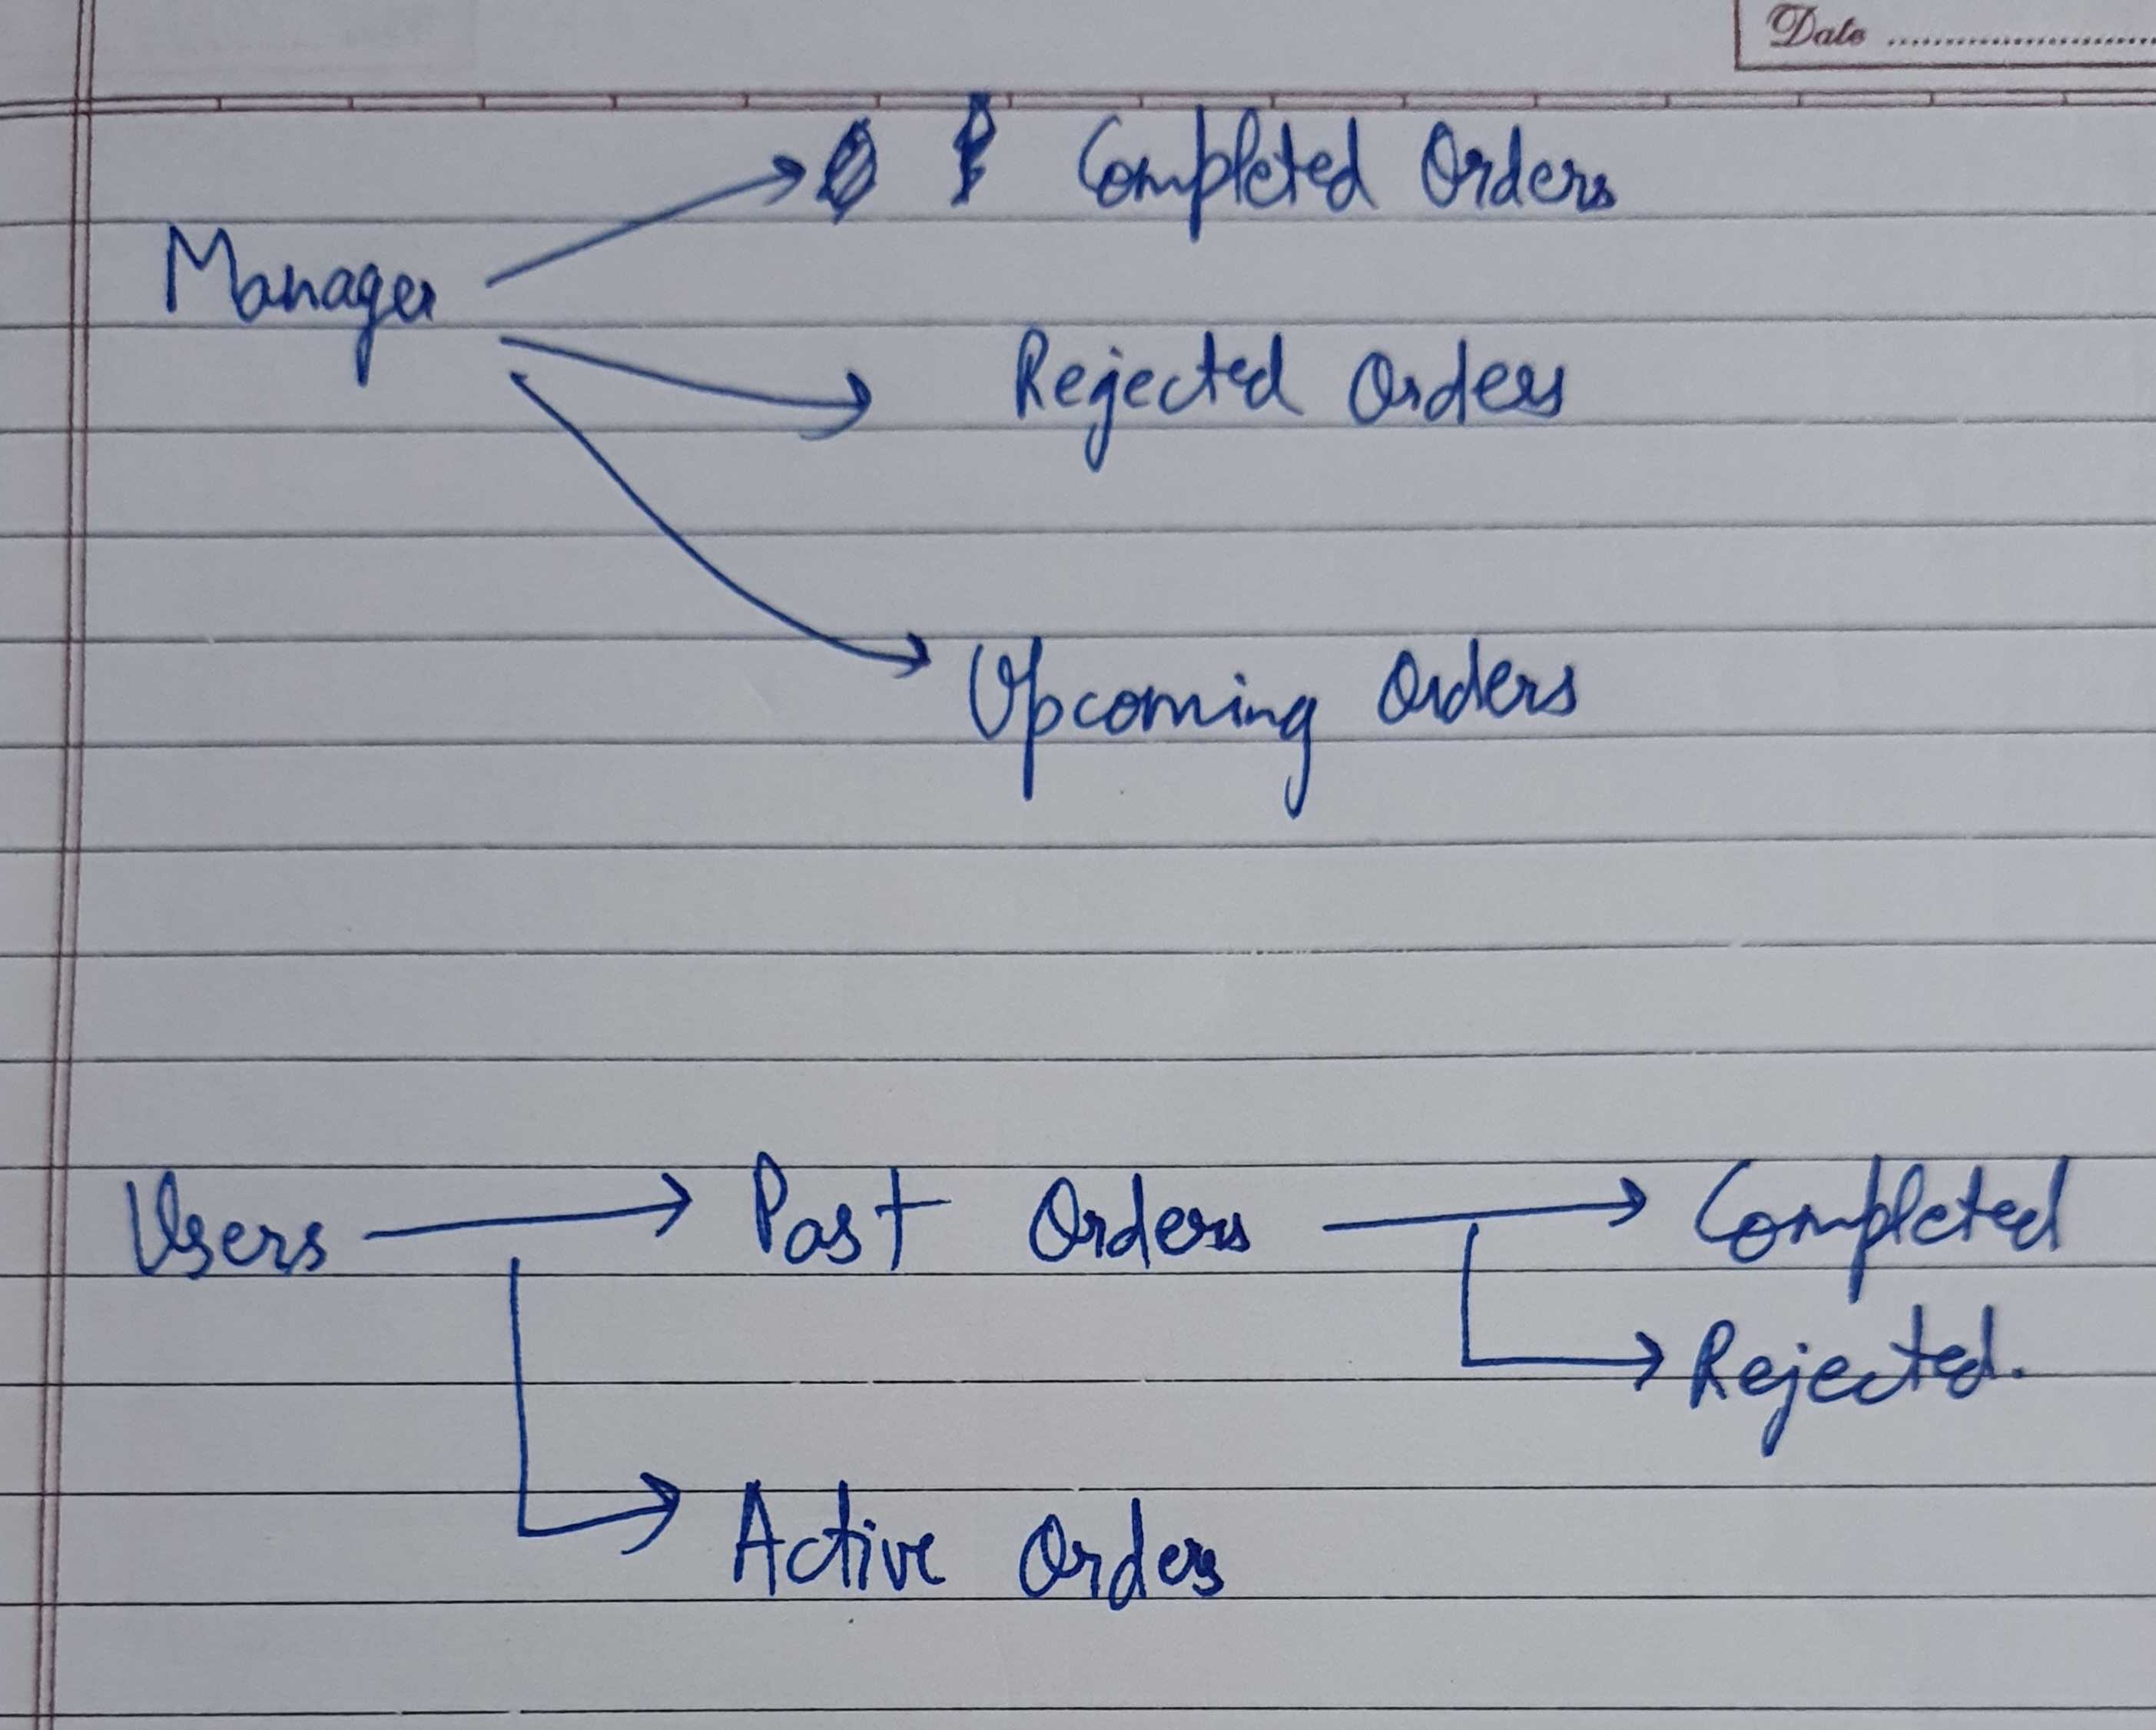 Date
Completed Orders
Manager
Rejected Orders
Upcoming Orders
Users Past Orders Completed
Rejected.
Active Orders